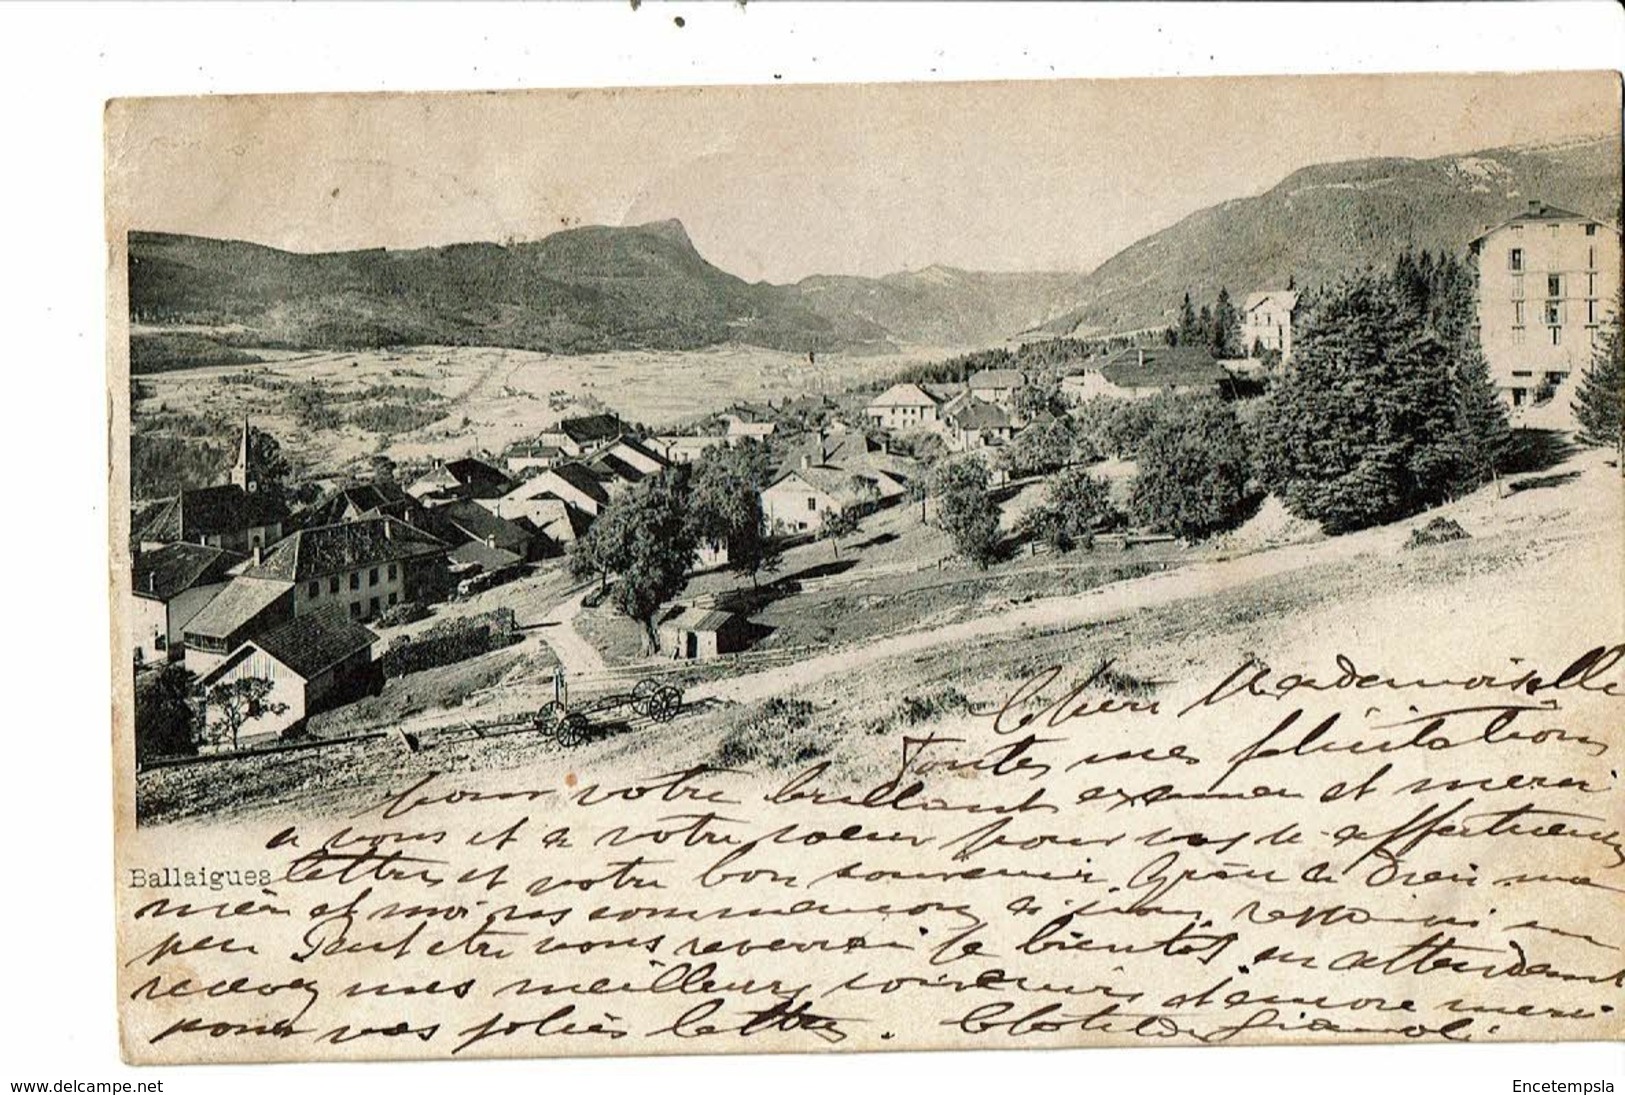 Chère Mademoiselle
Toutes mes félicitations
pour votre brillant examen et merci
a vous et a votre soeur pour vos si affectueuses
Ballaigues
lettres et votre bon souvenir. Grâce a Dieu ma
mère et moi nous commençons a respirer un
peu Peut être vous reverrai je bientôt, en attendant
recevez mes meilleurs souvenirs et encore merci
pour vos jolies lettres. Clotilde
www.delcampe.net
Encetempsla